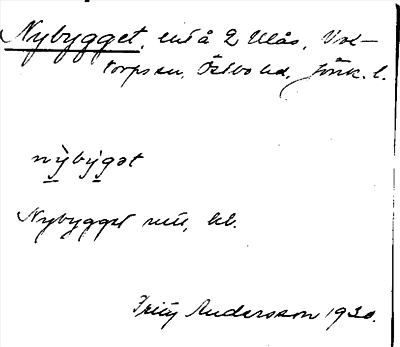 Nybygget, ent å 2 Ulås, Vol-
torps sn, Östbo hd, Jönk. l.
nỳbýgət
Nybygget
Fritz Andersson 1930.